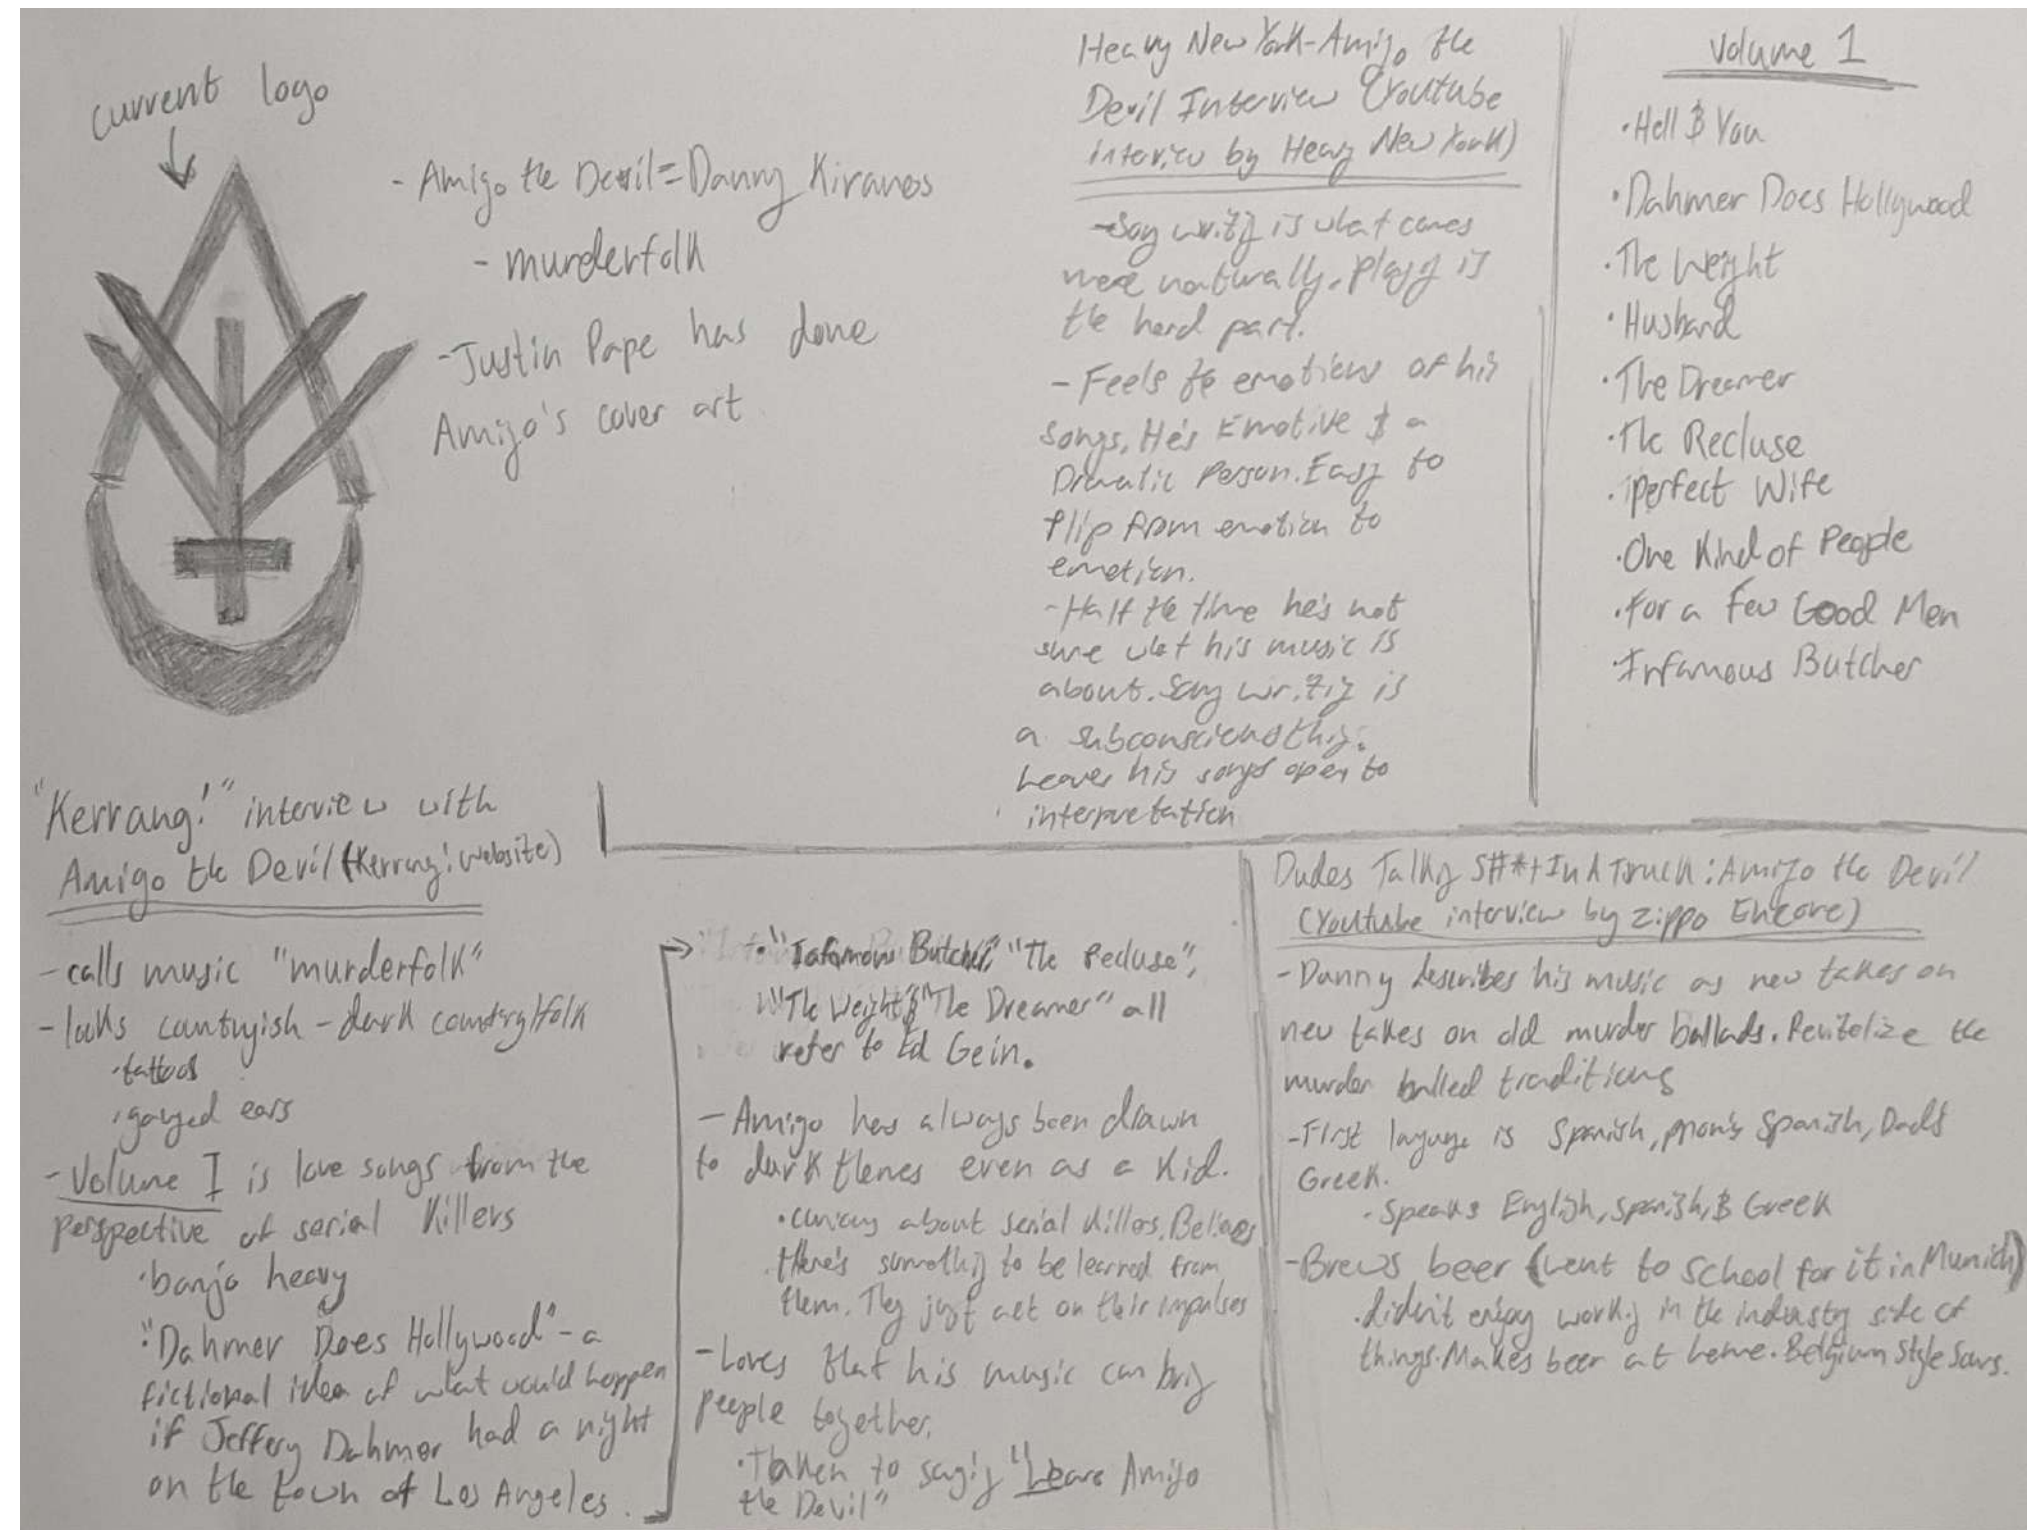 current logo
- Amigo the Devil = Danny Kiranos
- murderfolk
- Justin Pape has done
Amigo's cover art
Heavy New York-Amigo the
Devil Interview (Youtube
interview by Heavy New York)
-Song writing is what comes
more naturally. Playing is
the hard part.
- Feels the emotions of his
songs. He's Emotive & a
Dramatic Person. Easy to
flip from emotion to
emotion.
- Half the time he's not
sure what his music is
about. Song writing is
a subconscious thing.
Leaves his songs open to
interpretation
Volume 1
·Hell & You
·Dahmer Does Hollywood
·The Weight
·Husband
·The Dreamer
·The Recluse
·Perfect Wife
·One Kind of People
·For a Few Good Men
·Infamous Butcher
"Kerrang!" interview with
Amigo the Devil (Kerrang! website)
-calls music "murderfolk"
-looks countryish - dark country/folk
·tattoos
·gauged ears
-Volume I is love songs from the
perspective of serial killers
·banjo heavy
·"Dahmer Does Hollywood" - a
fictional idea of what would happen
if Jeffery Dahmer had a night
on the town of Los Angeles.
·"Infamous Butcher," "The Recluse",
"The Weight", & "The Dreamer" all
refer to Ed Gein.
- Amigo has always been drawn
to dark themes even as a kid.
·curious about serial killers. Believes
there's something to be learned from
them. They just act on their impulses
- Loves that his music can bring
people together.
·Taken to saying "We are Amigo
the Devil"
Dudes Talking S#*t In A Truck: Amigo the Devil
(Youtube interview by Zippo Encore)
- Danny describes his music as new takes on
new takes on old murder ballads. Revitalize the
murder ballad traditions
-First language is Spanish, Mom's Spanish, Dad's
Greek.
·Speaks English, Spanish, & Greek
-Brews beer (went to school for it in Munich)
·didn't enjoy working in the industry side of
things. Makes beer at home. Belgium Style Sours.